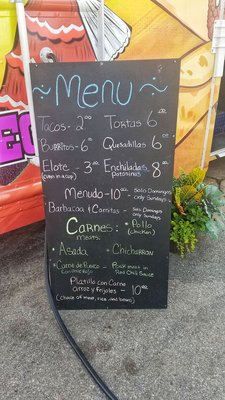 ~ Menu ~
Tacos - 2.00 Tortas 6.00
Burritos - 6.00 Quesadillas 6.00
Elote - 3.00 Enchiladas 8.00
(corn in a cup) Potosinas
Menudo - 10.00 Solo Domingos
only Sundays
Barbacoa y Carnitas - Solo Domingos
only Sundays
Carnes: • Pollo
meats. (chicken)
• Asada • Chicharron
• Carne de Puerco - Pork meat in
con chile Rojo Red Chili Sauce
Platillo con Carne
arroz y frijoles - 10.00
(choice of meat, rice and beans)